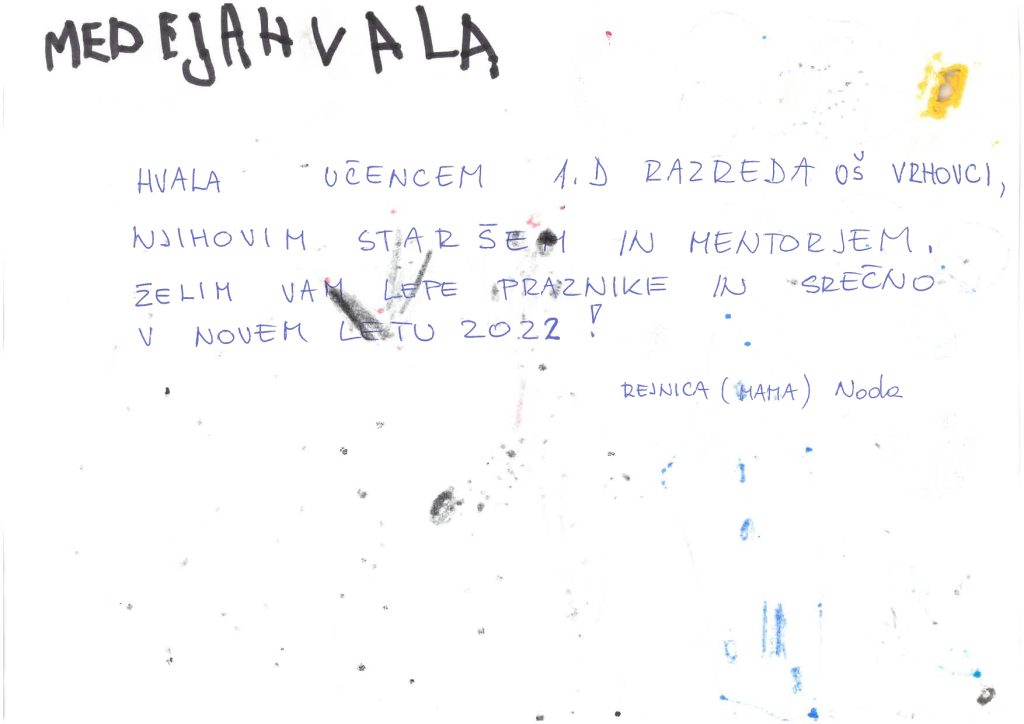 MEDEJAHVALA
HVALA UČENCEM 1.D RAZREDA OŠ VRHOVCI,
NJIHOVIM STARŠEM IN MENTORJEM.
ŽELIM VAM LEPE PRAZNIKE IN SREČNO
V NOVEM LETU 2022!
REJNICA (MAMA) Noda